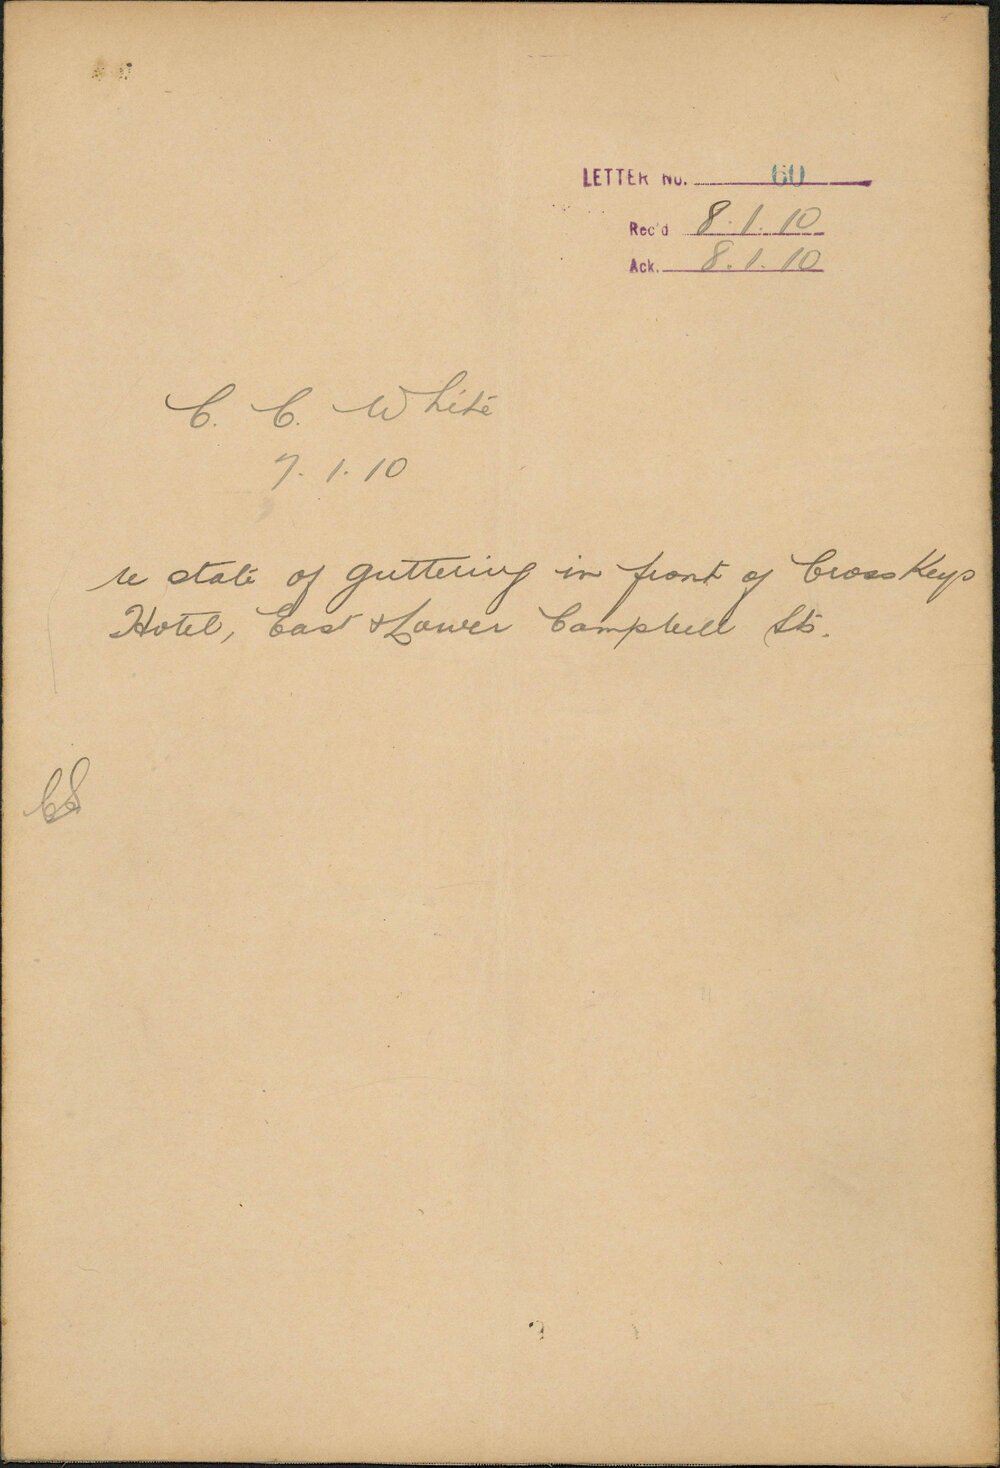 LETTER No. 60
Rec'd 8.1.10
Ack. 8.1.10
C. C. White
7.1.10
re state of guttering in front of Cross Keys
Hotel, East & Lower Campbell Sts.